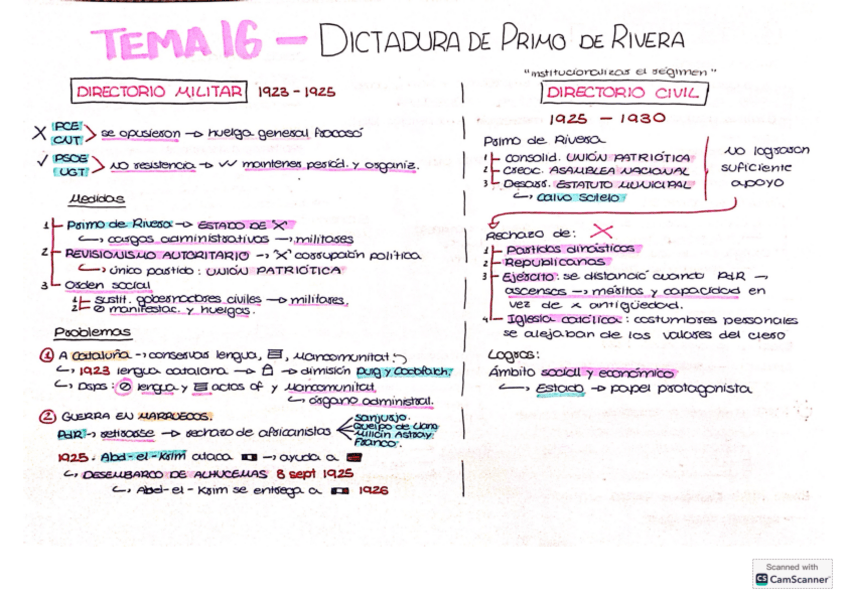 TEMA 16 — DICTADURA DE PRIMO DE RIVERA
DIRECTORIO MILITAR 1923-1925
X PCE
CNT > se opusieron → huelga general fracasó
✓ PSOE
UGT > NO resistencia → VV mantener periód. y organiz.
Medidas
1 Primo de Rivera → ESTADO DE "X"
↳ cargos administrativos → militares
2 REVISIONISMO AUTORITARIO → "X" corrupción política
↳ único partido: UNIÓN PATRIÓTICA
3 Orden social
1 sustit. gobernadores civiles → militares.
2 ⊘ manifestac. y huelgas.
Problemas
① A Cataluña → conservar lengua, , Mancomunitat.
↳ 1923 lengua catalana → → dimisión Puig y Cadafalch.
↳ Dsps: ⊘ lengua y actos of y Mancomunitat
↳ órgano administral.
② GUERRA EN MARRUECOS.
PdR → retirarse → rechazo de africanistas
Sanjurjo.
Queipo de Llano
Millán Astray
Franco.
1925. Abd-el-Krim ataca → ayuda a
↳ DESEMBARCO DE ALHUCEMAS 8 sept 1925
↳ Abd-el-Krim se entrega a 1926
"institucionalizar el régimen"
DIRECTORIO CIVIL
1925 — 1930
Primo de Rivera
1 consolid. UNIÓN PATRIÓTICA
2 Creac. ASAMBLEA NACIONAL
3 Desarr. ESTATUTO MUNICIPAL
↳ Calvo Sotelo
No lograron
suficiente
apoyo
Rechazo de: X
1 Partidos dinásticos
2 Republicanos
3 Ejército: se distanció cuando PdR →
ascensos → méritos y capacidad en
vez de x antigüedad.
4 Iglesia católica: costumbres personales
se alejaban de los valores del clero
Logros:
Ámbito social y económico
↳ Estado → papel protagonista
Scanned with
CS CamScanner